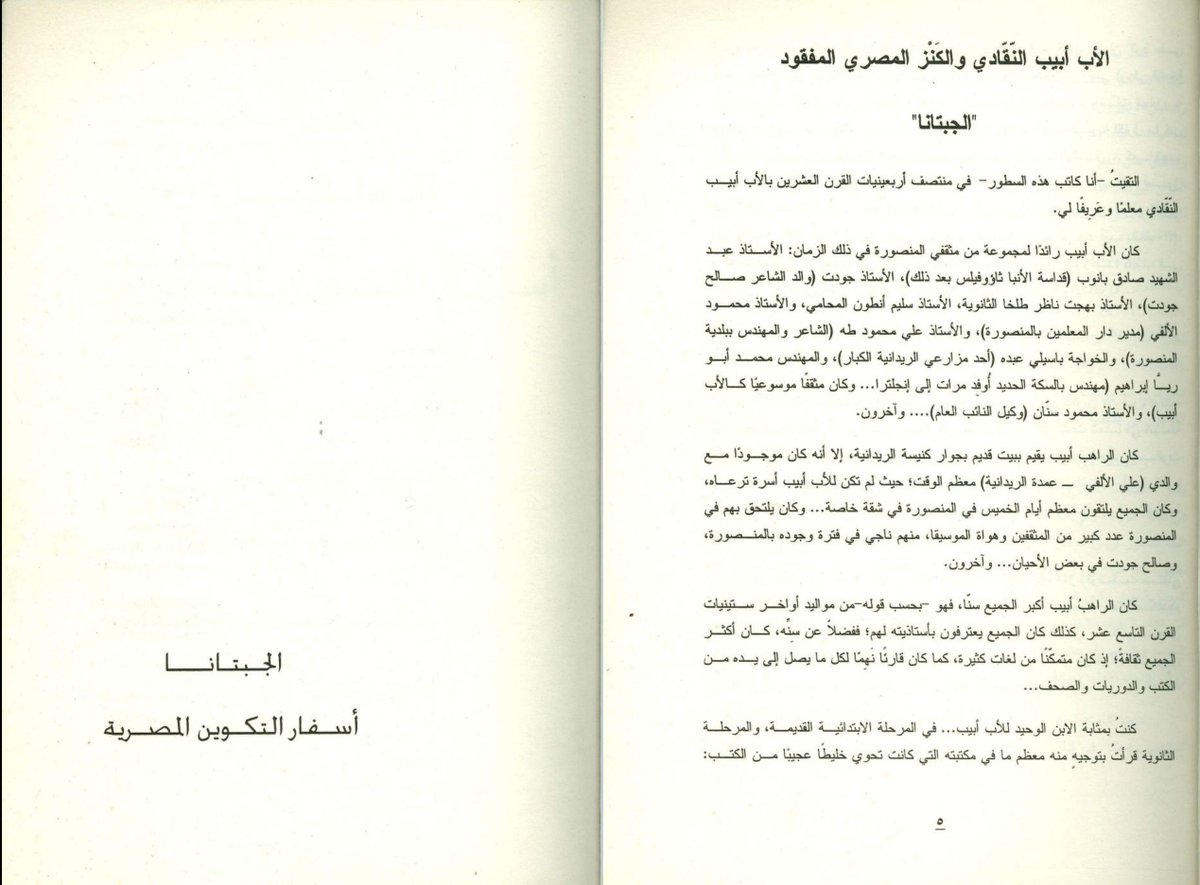 الأب أبيب النّقّادي والكَنْز المصري المفقود
"الجبتانا"
التقيتُ -أنا كاتب هذه السطور- في منتصف أربعينيات القرن العشرين بالأب أبيب
النّقّادي معلمًا وعَرِيفًا لي.
كان الأب أبيب رائدًا لمجموعة من مثقفي المنصورة في ذلك الزمان: الأستاذ عبد
الشهيد صادق بانوب (قداسة الأنبا ثاؤوفيلس بعد ذلك)، الأستاذ جودت (والد الشاعر صالح
جودت)، الأستاذ بهجت ناظر طلخا الثانوية، الأستاذ سليم أنطون المحامي، والأستاذ محمود
الألفي (مدير دار المعلمين بالمنصورة)، والأستاذ علي محمود طه (الشاعر والمهندس ببلدية
المنصورة)، والخواجة باسيلي عبده (أحد مزارعي الريدانية الكبار)، والمهندس محمد أبو
ريـَّا إبراهيم (مهندس بالسكة الحديد أُوفد مرات إلى إنجلترا... وكان مثقفًا موسوعيًا كالأب
أبيب)، والأستاذ محمود سنّان (وكيل النائب العام).... وآخرون.
كان الراهب أبيب يقيم ببيت قديم بجوار كنيسة الريدانية، إلا أنه كان موجودًا مع
والدي (علي الألفي – عمدة الريدانية) معظم الوقت؛ حيث لم تكن للأب أبيب أسرة ترعاه،
وكان الجميع يلتقون معظم أيام الخميس في المنصورة في شقة خاصة... وكان يلتحق بهم في
المنصورة عدد كبير من المثقفين وهواة الموسيقا، منهم ناجي في فترة وجوده بالمنصورة،
وصالح جودت في بعض الأحيان... وآخرون.
كان الراهبُ أبيب أكبر الجميع سنّا، فهو -بحسب قوله-من مواليد أواخر ستينيات
القرن التاسع عشر، كذلك كان الجميع يعترفون بأستاذيته لهم؛ ففضلاً عن سِنِّه، كان أكثر
الجميع ثقافةً؛ إذ كان متمكّنًا من لغات كثيرة، كما كان قارئًا نَهِمًا لكل ما يصل إلى يده من
الكتب والدوريات والصحف...
كنتُ بمثابة الابن الوحيد للأب أبيب... في المرحلة الابتدائية القديمة، والمرحلة
الثانوية قرأتُ بتوجيهٍ منه معظم ما في مكتبته التي كانت تحوي خليطًا عجيبًا من الكتب:
٥
الجبتانا
أسفار التكوين المصرية